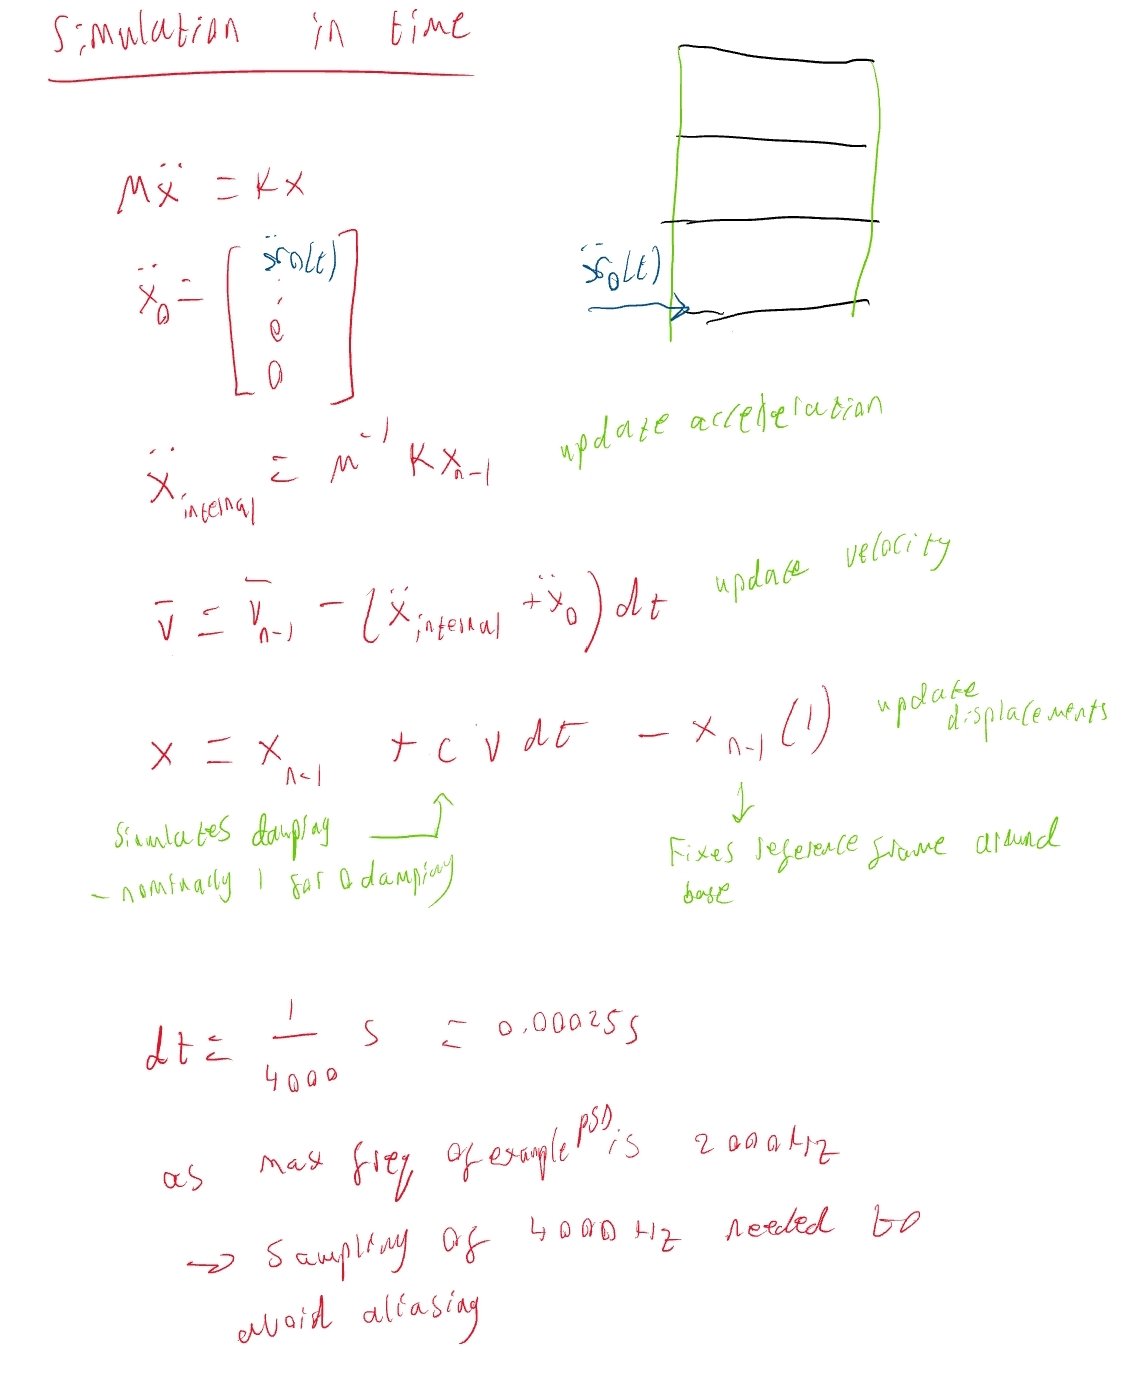 Simulation in time
Mẍ = Kx
ẍ₀ = [ẍ₀(t) : 0 0]
ẍ₀(t)
ẍ_internal = M⁻¹ K x_n-1
update acceleration
v̄ = v̄_n-1 - (ẍ_internal + ẍ₀) dt
update velocity
x = x_n-1 + c v dt - x_n-1 (1)
update displacements
Simulates damping
- nominally 1 for 0 damping
Fixes reference frame around
base
dt = 1/4000 s = 0.00025s
as max freq of example PSD is 2000Hz
→ Sampling of 4000Hz needed to
avoid aliasing